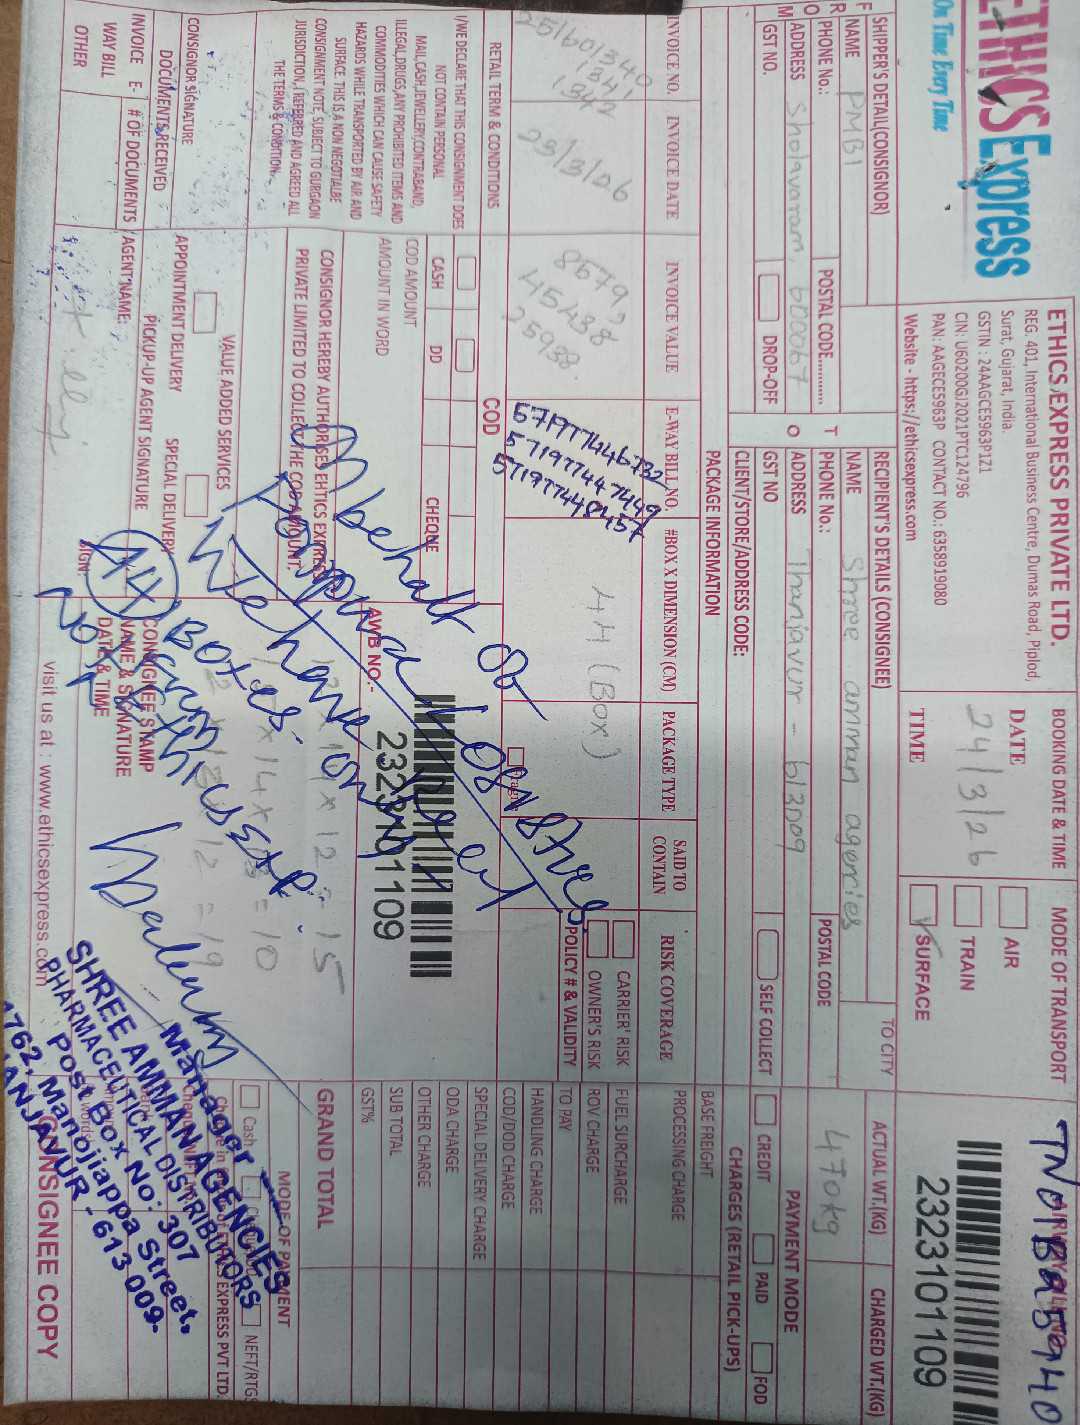 ETHICS Express
On Time Every Time
ETHICS EXPRESS PRIVATE LTD.
REG 401, International Business Centre, Dumas Road, Piplod,
Surat, Gujarat, India.
GSTIN : 24AAGCE5963P1Z1
CIN: U60200GJ2021PTC124796
PAN: AAGECE5963P CONTACT NO.: 6358919080
Website - https://ethicsexpress.com
BOOKING DATE & TIME
DATE 24/3/26
TIME
MODE OF TRANSPORT
AIR
TRAIN
SURFACE
2323101109
SHIPPER'S DETAIL(CONSIGNOR)
FROM
NAME PMB1
PHONE No.:
POSTAL CODE............
ADDRESS Sholavaram, 600067
GST NO.
DROP-OFF
RECIPIENT'S DETAILS (CONSIGNEE)
TO
NAME Shree amman agencies
PHONE No.:
POSTAL CODE
TO CITY
ADDRESS Thanjavur - 613009
GST NO
SELF COLLECT
CLIENT/STORE/ADDRESS CODE:
ACTUAL WT.(KG)
CHARGED WT.(KG)
470kg
PAYMENT MODE
CREDIT
PAID
FOD
PACKAGE INFORMATION
CHARGES (RETAIL PICK-UPS)
INVOICE NO.
INVOICE DATE
INVOICE VALUE
E-WAY BILL NO.
#BOX X DIMENSION (CM)
PACKAGE TYPE
SAID TO CONTAIN
RISK COVERAGE
25/601340
1341
1342
23/3/26
8579
45438
25938
571977446732
571977447449
571977448457
44 (Box)
Fragile
CARRIER' RISK
OWNER'S RISK
POLICY # & VALIDITY
BASE FREIGHT
PROCESSING CHARGE
FUEL SURCHARGE
ROV CHARGE
TO PAY
HANDLING CHARGE
COD/DOD CHARGE
SPECIAL DELIVERY CHARGE
ODA CHARGE
OTHER CHARGE
SUB TOTAL
GST%
GRAND TOTAL
RETAIL TERM & CONDITIONS
I/WE DECLARE THAT THIS CONSIGNMENT DOES
NOT CONTAIN PERSONAL
MAIL,CASH,JEWELLERY,CONTRABAND,
ILLEGAL,DRUGS,ANY PROHIBITED ITEMS AND
COMMODITIES WHICH CAN CAUSE SAFETY
HAZARDS WHILE TRANSPORTED BY AIR AND
SURFACE. THIS IS A NON NEGOTIALBE
CONSIGNMENT NOTE, SUBJECT TO GURGAON
JURISDICTION, I REFERRED AND AGREED ALL
THE TERMS & CONDITION.
CONSIGNOR SIGNATURE
COD
CASH
DD
CHEQUE
COD AMOUNT
AMOUNT IN WORD
CONSIGNOR HEREBY AUTHORISES EHTICS EXPRESS
PRIVATE LIMITED TO COLLECT THE COD AMOUNT.
AWB NO.-
2323101109
VALUE ADDED SERVICES
APPOINTMENT DELIVERY
SPECIAL DELIVERY
DOCUMENTS RECEIVED
PICKUP-UP AGENT SIGNATURE
INVOICE E-WAY BILL
# OF DOCUMENTS
AGENT NAME:
SIGN:
OTHER
CONSIGNEE STAMP
NAME & SIGNATURE
DATE & TIME
behalf of
We have only
44 Boxes.
Manager
SHREE AMMAN AGENCIES
PHARMACEUTICAL DISTRIBUTORS
Post Box No: 307
1762, Manojiappa Street,
THANJAVUR - 613 009.
MODE OF PAYMENT
Cash
NEFT/RTGS
visit us at : www.ethicsexpress.com
CONSIGNEE COPY